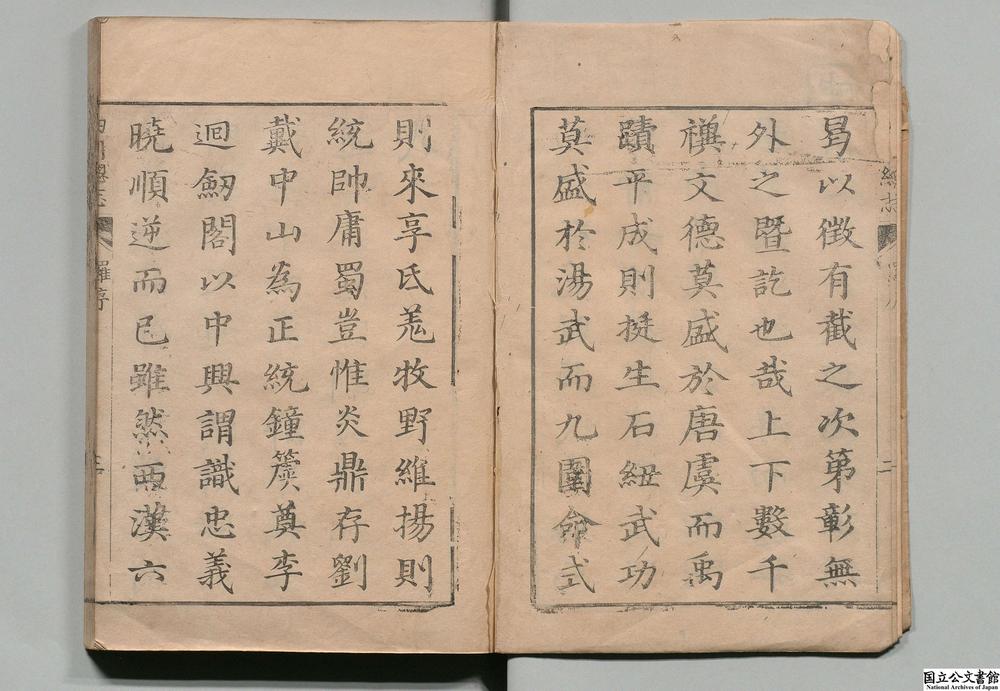 曷以徵有截之次第彰無
外之暨訖也哉上下數千
禩文德莫盛於唐虞而禹
蹟平成則挺生石紐武功
莫盛於湯武而九圍命式
則來享氐羌牧野維揚則
統帥庸蜀豈惟炎鼎存劉
戴中山為正統鐘簴奠李
迴劒閣以中興謂識忠義
曉順逆而已雖然兩漢六
羅序
国立公文書館
National Archives of Japan